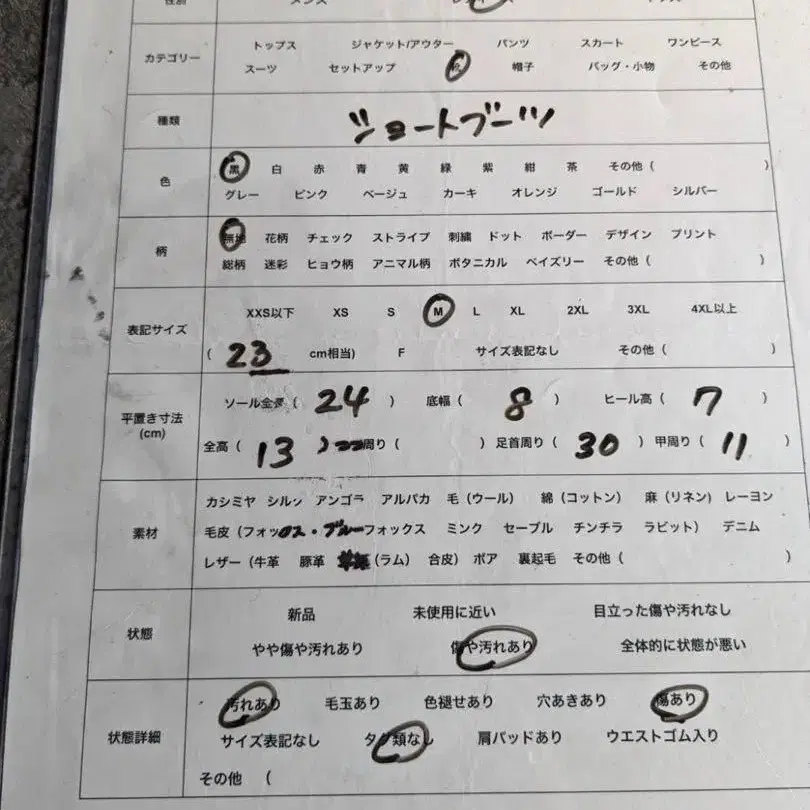 性別 メンズ
カテゴリー
トップス ジャケット/アウター パンツ スカート ワンピース
スーツ セットアップ 靴 帽子 バッグ・小物 その他
種類 ショートブーツ
色
黒 白 赤 青 黄 緑 紫 紺 茶 その他 ( )
グレー ピンク ベージュ カーキ オレンジ ゴールド シルバー
柄
無地 花柄 チェック ストライプ 刺繍 ドット ボーダー デザイン プリント
総柄 迷彩 ヒョウ柄 アニマル柄 ボタニカル ペイズリー その他 ( )
表記サイズ
XXS以下 XS S M L XL 2XL 3XL 4XL以上
( 23 cm相当) F サイズ表記なし その他 ( )
平置き寸法
(cm)
ソール全長 ( 24 ) 底幅 ( 8 ) ヒール高 ( 7 )
全高 ( 13 ) 周り ( ) 足首周り ( 30 ) 甲周り ( 11 )
素材
カシミヤ シルク アンゴラ アルパカ 毛 (ウール) 綿 (コットン) 麻 (リネン) レーヨン
毛皮 (フォックス・ブルーフォックス ミンク セーブル チンチラ ラビット) デニム
レザー (牛革 豚革 (ラム) 合皮) ボア 裏起毛 その他 ( )
状態
新品 未使用に近い 目立った傷や汚れなし
やや傷や汚れあり 傷や汚れあり 全体的に状態が悪い
状態詳細
汚れあり 毛玉あり 色褪せあり 穴あきあり 傷あり
サイズ表記なし タグ類なし 肩パッドあり ウエストゴム入り
その他 (